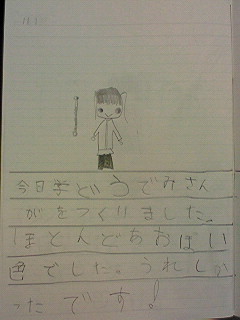 今日学どうでみさん
がをつくりました。
ほとんどあおぽい
色でした。うれしか
ったです!